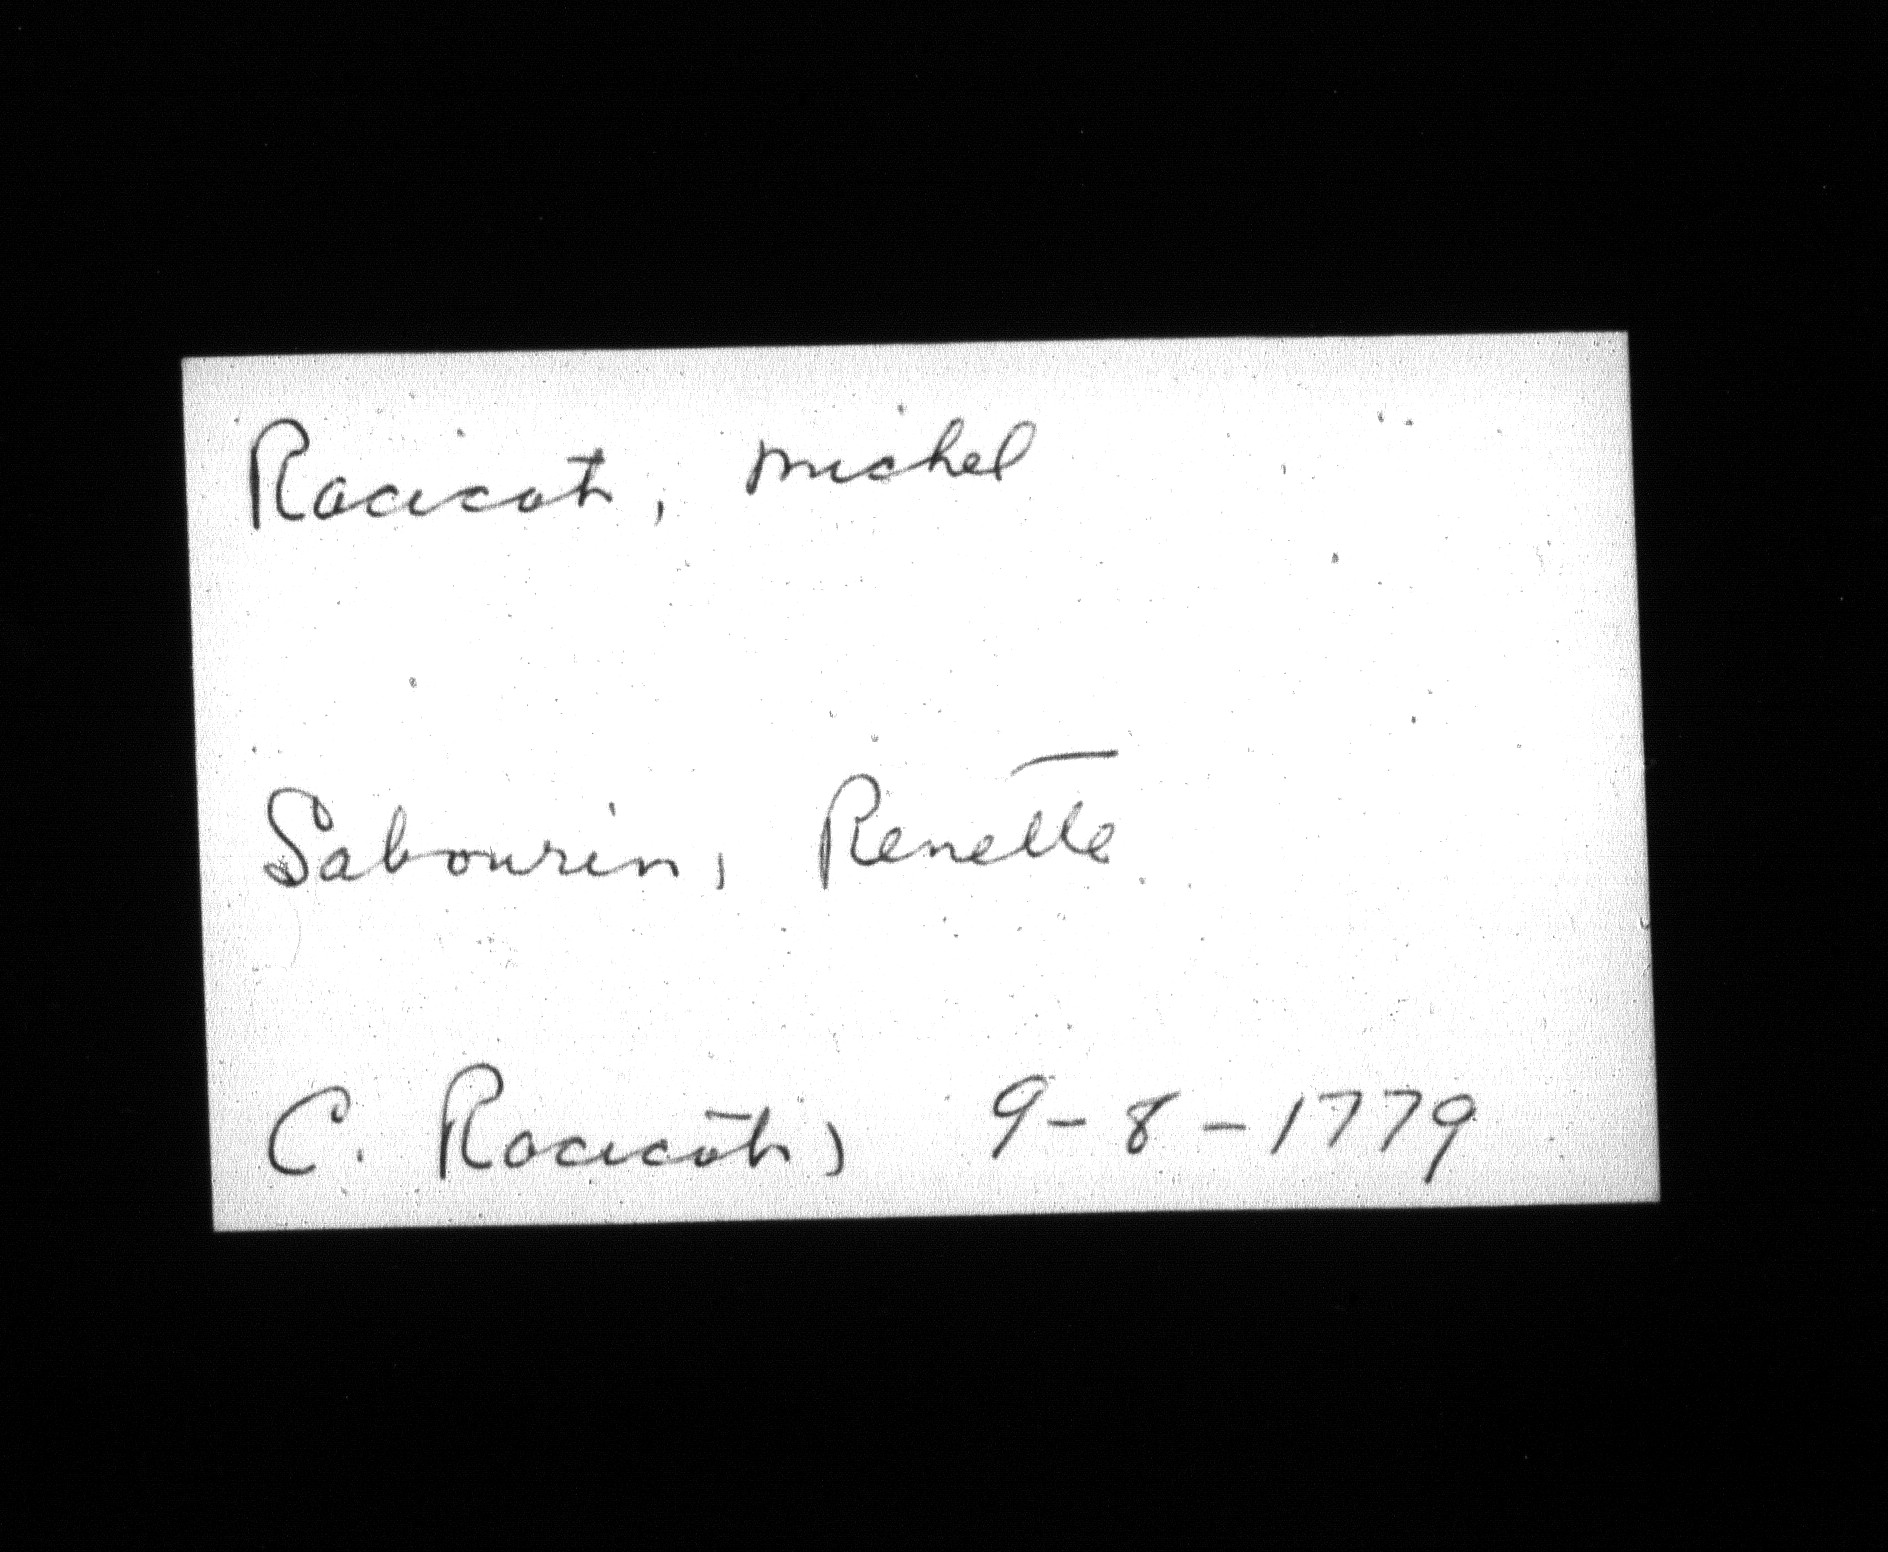 Racicot, Michel
Sabourin, Renette
C. Racicot, 9-8-1779